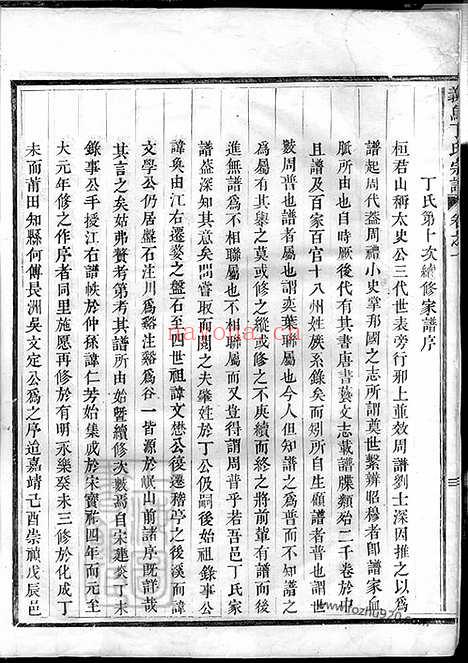 義烏丁氏宗譜 卷之一
丁氏第十次續修家譜序
桓君山稱太史公三代世表旁行邪上並效周譜劉士深因推之以爲
譜起周代蓋周禮小史掌邦國之志所謂奠世繫辨昭穆者卽譜家血
脈所由昉厥後代有其書唐書藝文志載譜牒類殆二千卷於中
且譜及百家百官十八州姓族系錄矣而矧所自生顧譜者也謂世
數周普也謂以奕葉聯屬也今人但知譜之爲普而不
爲屬有其舉之莫或修之縱或修之不賡續而終之將前輩有譜而後
進無譜以不相聯屬也不相聯屬而又豈得謂周普乎若吾邑丁氏家
譜益深知其意矣間嘗取而閱之夫肇姓於丁公伋嗣後始祖錄事公
諱奐由江右遷婺之盤石至四世祖諱文懋公後遷稽亭之後溪而諱
文學公仍居盤石注川爲谿注谿爲谷一皆源於岷山前諸序旣詳哉
其言之矣姑弗贅考第考其譜所由始曁續修次數焉自宋建炎丁未
錄事公手授江右譜帙於仲孫諱仁芳始集成於宋寶祚四年而元至
大元年修之作序者同里施愿再修於有明永樂癸未三修於化成丁
未而莆田知縣何傅長洲吳文定公爲之序迨嘉靖己酉崇禎戊辰邑
nahona.cn
zhuo920.com